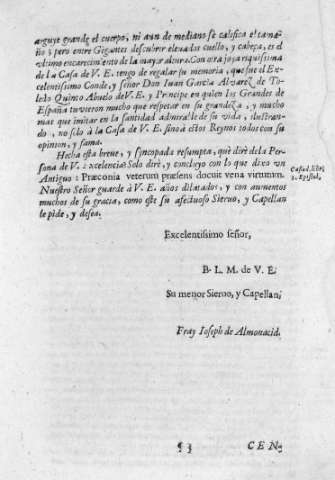 arguye grande el cuerpo, ni aun de mediano se califica el tama-
ño; pero entre Gigantes descubrir elevado el cuello, y cabeça, es el
vltimo encarecimiento de la mayor altura. Con otra joya riquissima
de la Casa de V. E. tengo de regalar su memoria, que fue el Ex-
celentissimo Conde, y señor Don Iuan Garcia Alvarez de To-
ledo Quinto Abuelo de V. E. y Principe en quien los Grandes de
España tuvieron mucho que respetar en su grandeza, y mucho
mas que imitar en la santidad admirable de su vida, ilustran-
do, no solo à la Casa de V. E. sino à estos Reynos todos con su
opinion, y fama.
Hecha esta breve, y syncopada resumpta, què dirè de la Per-
sona de V. Excelencia? Solo dirè, y concluyo con lo que dixo vn
Antiguo: Præconia veterum præsens docuit vena virtutum.
Casiod. libr.
3. Epistol.
Nuestro Señor guarde à V. E. años dilatados, y con aumentos
muchos de su gracia, como este su afectuoso Siervo, y Capellan
le pide, y desea.
Excelentissimo señor,
B. L. M. de V. E.
Su menor Siervo, y Capellan;
Fray Ioseph de Almonacid.
¶ 3 CEN-